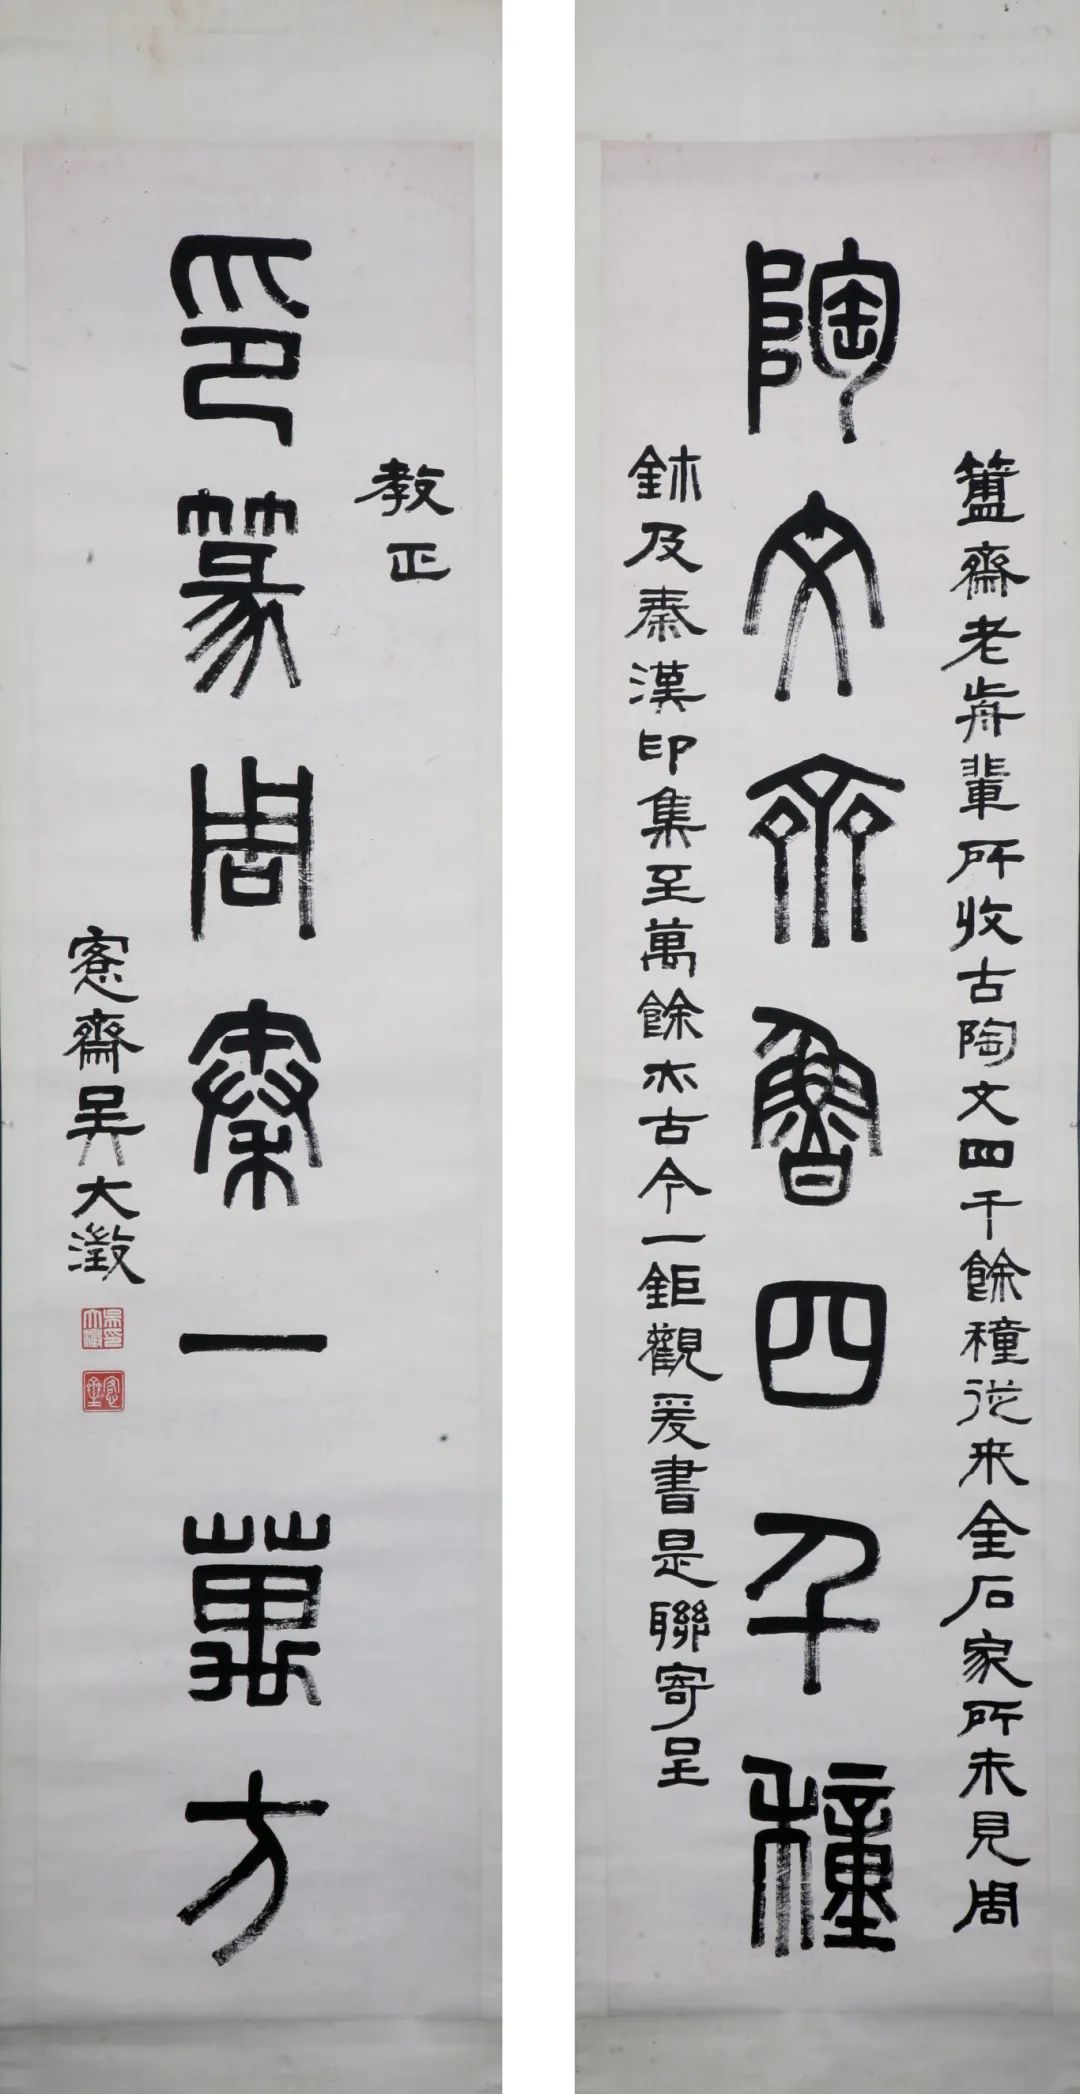 簠齋老歬輩所收古陶文四千餘穜從来金石家所未見周
陶文齊魯四千穜
鉥及秦漢印集至萬餘亦古今一鉅觀爰書是聯寄呈
教正
印篆周秦一萬方
愙齋吳大澂
吳印大澂